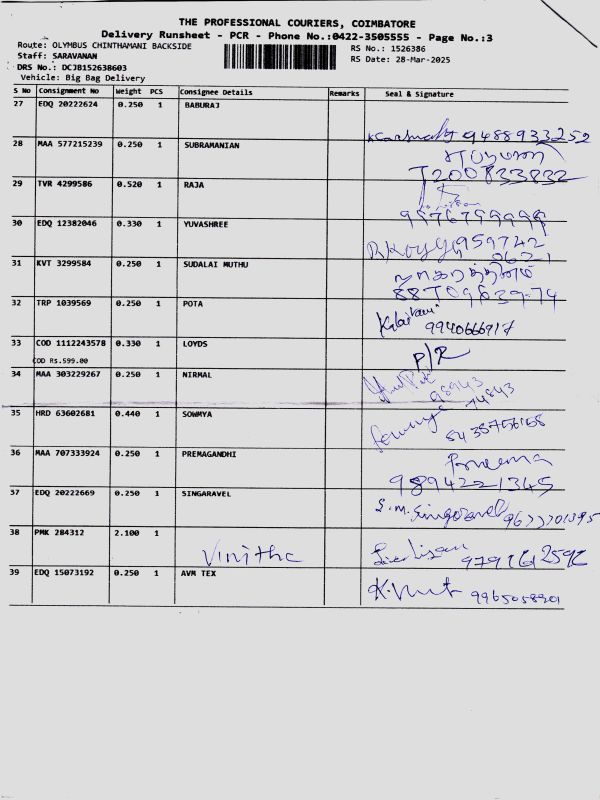 THE PROFESSIONAL COURIERS, COIMBATORE
Delivery Runsheet - PCR - Phone No.:0422-3505555 - Page No.:3
Route: OLYMBUS CHINTHAMANI BACKSIDE
RS No.: 1526386
Staff: SARAVANAN
RS Date: 28-Mar-2025
DRS No.: DCJB152638603
Vehicle: Big Bag Delivery
S No Consignment No Weight PCS Consignee Details Remarks Seal & Signature
27 EDQ 20222624 0.250 1 BABURAJ
9488933252
28 MAA 577215239 0.250 1 SUBRAMANIAN
7200833832
29 TVR 4299586 0.520 1 RAJA
30 EDQ 12382046 0.330 1 YUVASHREE
959742
0621
31 KVT 3299584 0.250 1 SUDALAI MUTHU
32 TRP 1039569 0.250 1 POTA
9940666917
33 COD 1112243578 0.330 1 LOYDS
COD Rs.599.00
P/R
34 MAA 303229267 0.250 1 NIRMAL
98943
74843
35 HRD 63602681 0.440 1 SOWMYA
36 MAA 707333924 0.250 1 PREMAGANDHI
Prema
9894221345
37 EDQ 20222669 0.250 1 SINGARAVEL
S.M.Singaravel 9677701395
38 PMK 284312 2.100 1
Vinitha
9791612592
39 EDQ 15073192 0.250 1 AVM TEX
9965058901